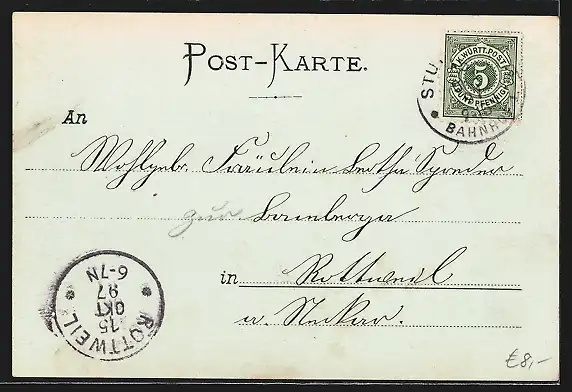 POST-KARTE.
K.WÜRTT.POST
5
FÜNF PFENNIG
STU
BAHNH
An
Wohlgeb. Fräulein Bertha Speeder
zur
in Rottweil
a. Neckar.
ROTTWEIL
15
OKT
97
6-7N
€8,-